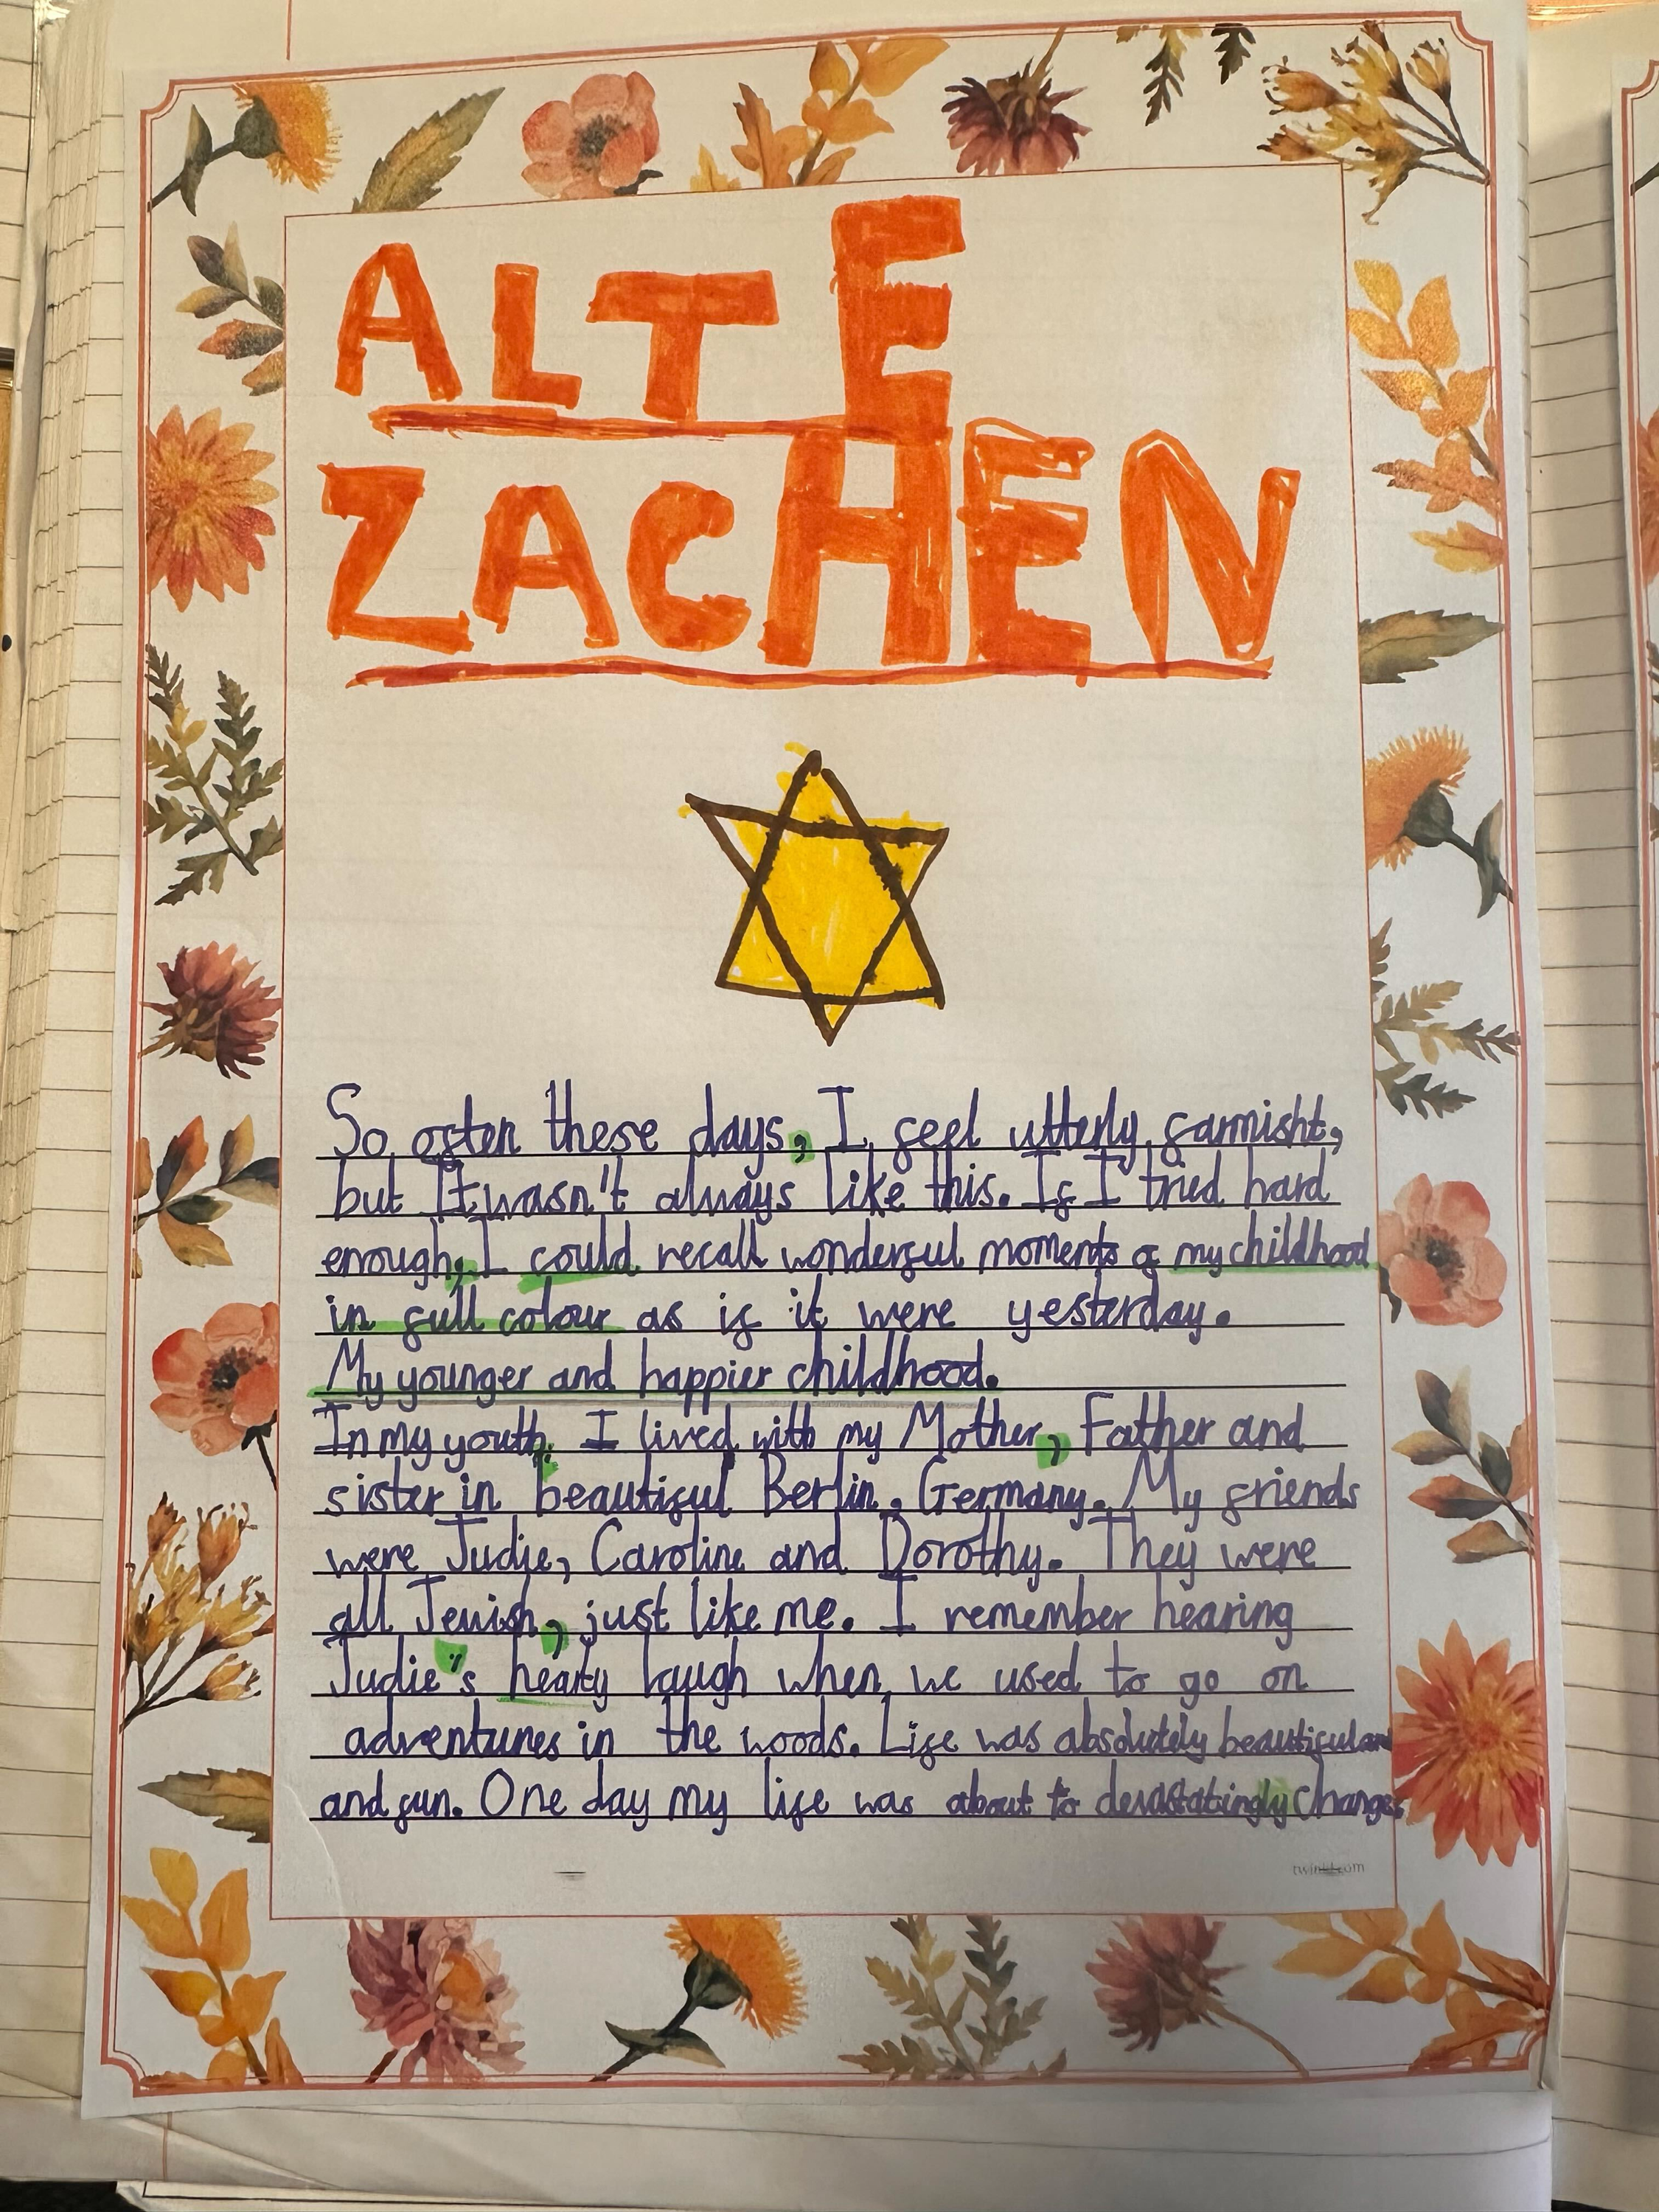 ALTE
ZACHEN
So often these days, I feel utterly farmisht,
but It wasn't always like this. If I tried hard
enough, I could recall wonderful moments of my childhood
in full colour as if it were yesterday.
My younger and happier childhood.
In my youth, I lived with my Mother, Father and
sister in beautiful Berlin, Germany. My friends
were Judie, Caroline and Dorothy. They were
all Jewish, just like me. I remember hearing
Judie's hearty laugh when we used to go on
adventures in the woods. Life was absolutely beautiful and
and fun. One day my life was about to devastatingly change.
twinkl.com